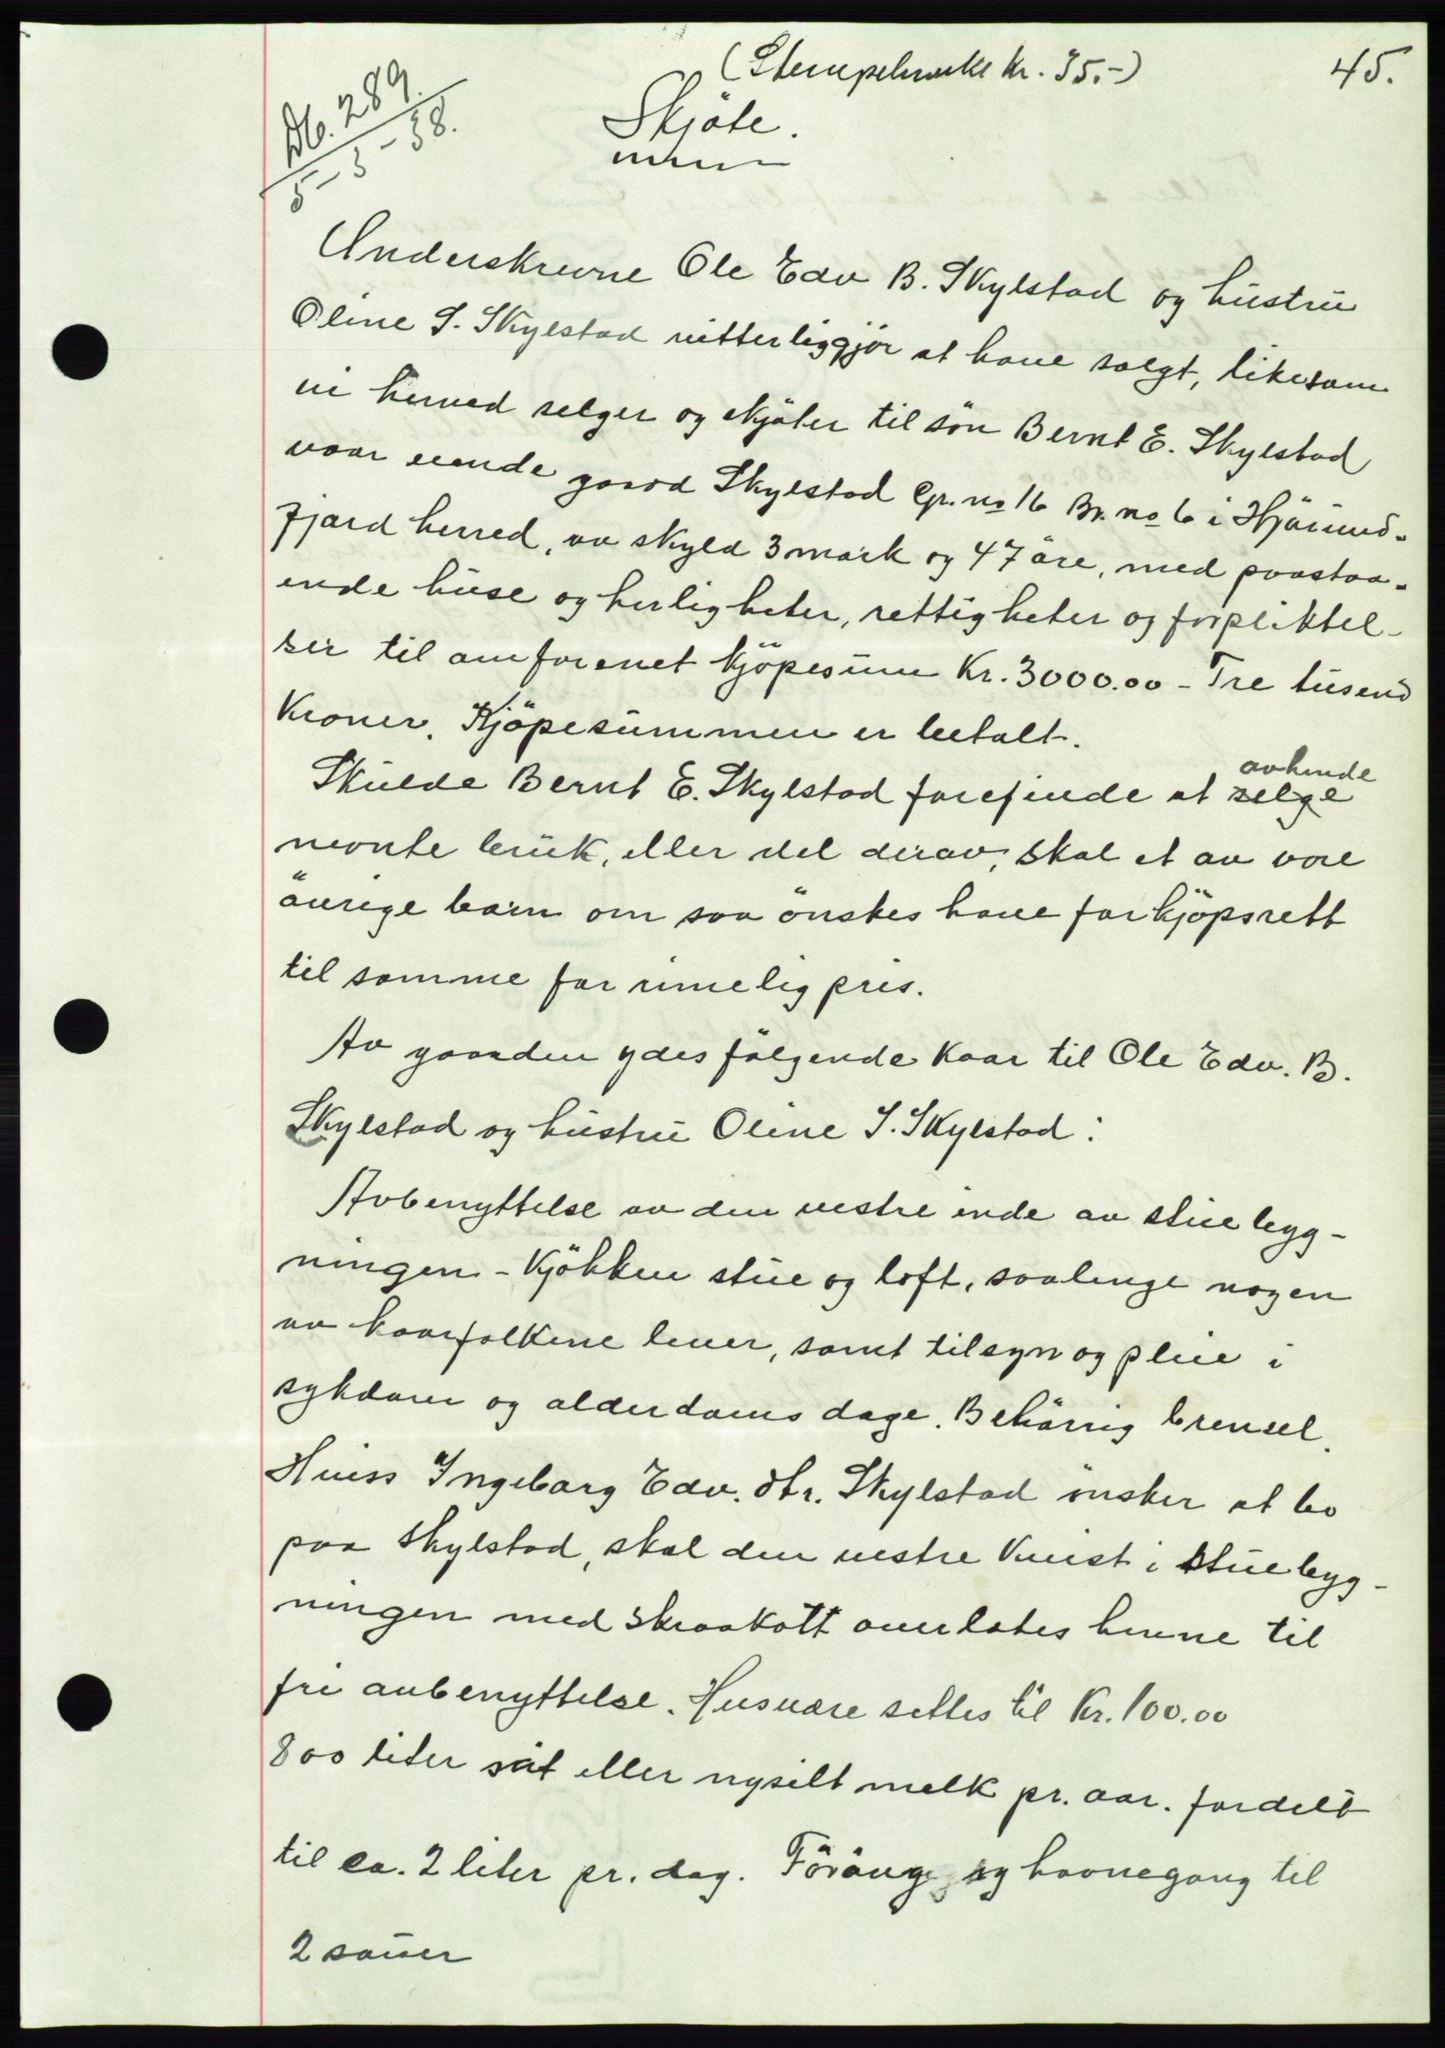 (Stempelmerke kr. 35.-) 45.
Db. 289.
5-3-38.
Skjöte.
Underskrevne Ole Edv B. Skylstad og hustru
Oline S. Skylstad vitterliggjör at have solgt, likesom
vi herved selger og skjöter til sön Bernt E. Skylstad
vaar eiende gaard Skylstad Gr. no 16 Br. no 6 i Hjörund-
fjord herred, av skyld 3 mark og 47 öre, med paastaa-
ende huse og herligheter, rettigheter og forpliktel-
ser til omforenet kjöpesum Kr. 3000.00 - Tre tusend
Kroner. Kjöpesummen er betalt.
Skulde Bernt E. Skylstad forefinde at selge avhende
nevnte bruk, eller del derav, skal et av vore
övrige barn om saa önskes have forkjöpsrett
til somme for rimelig pris.
Av gaarden ydes fölgende Kaar til Ole Edv. B.
Skylstad og hustru Oline S. Skylstad:
Avbenyttelse av den vestre ende av stuebyg-
ningen - Kjökken stue og loft, saalenge nogen
av kaarfolkene lever, samt tilsyn og pleie i
sykdom og alderdoms dage. Behörig brensel.
Hviss Ingeborg Edv. dtr. Skylstad önsker at bo
paa Skylstad, skal den vestre Kvist i stuebyg-
ningen med skraakott overlates henne til
fri avbenyttelse. Husvære settes til Kr. 100.00
800 liter söt eller nysilt melk pr. aar. fordelt
til ca. 2 liter pr. dag. og havnegang til
2 sauer